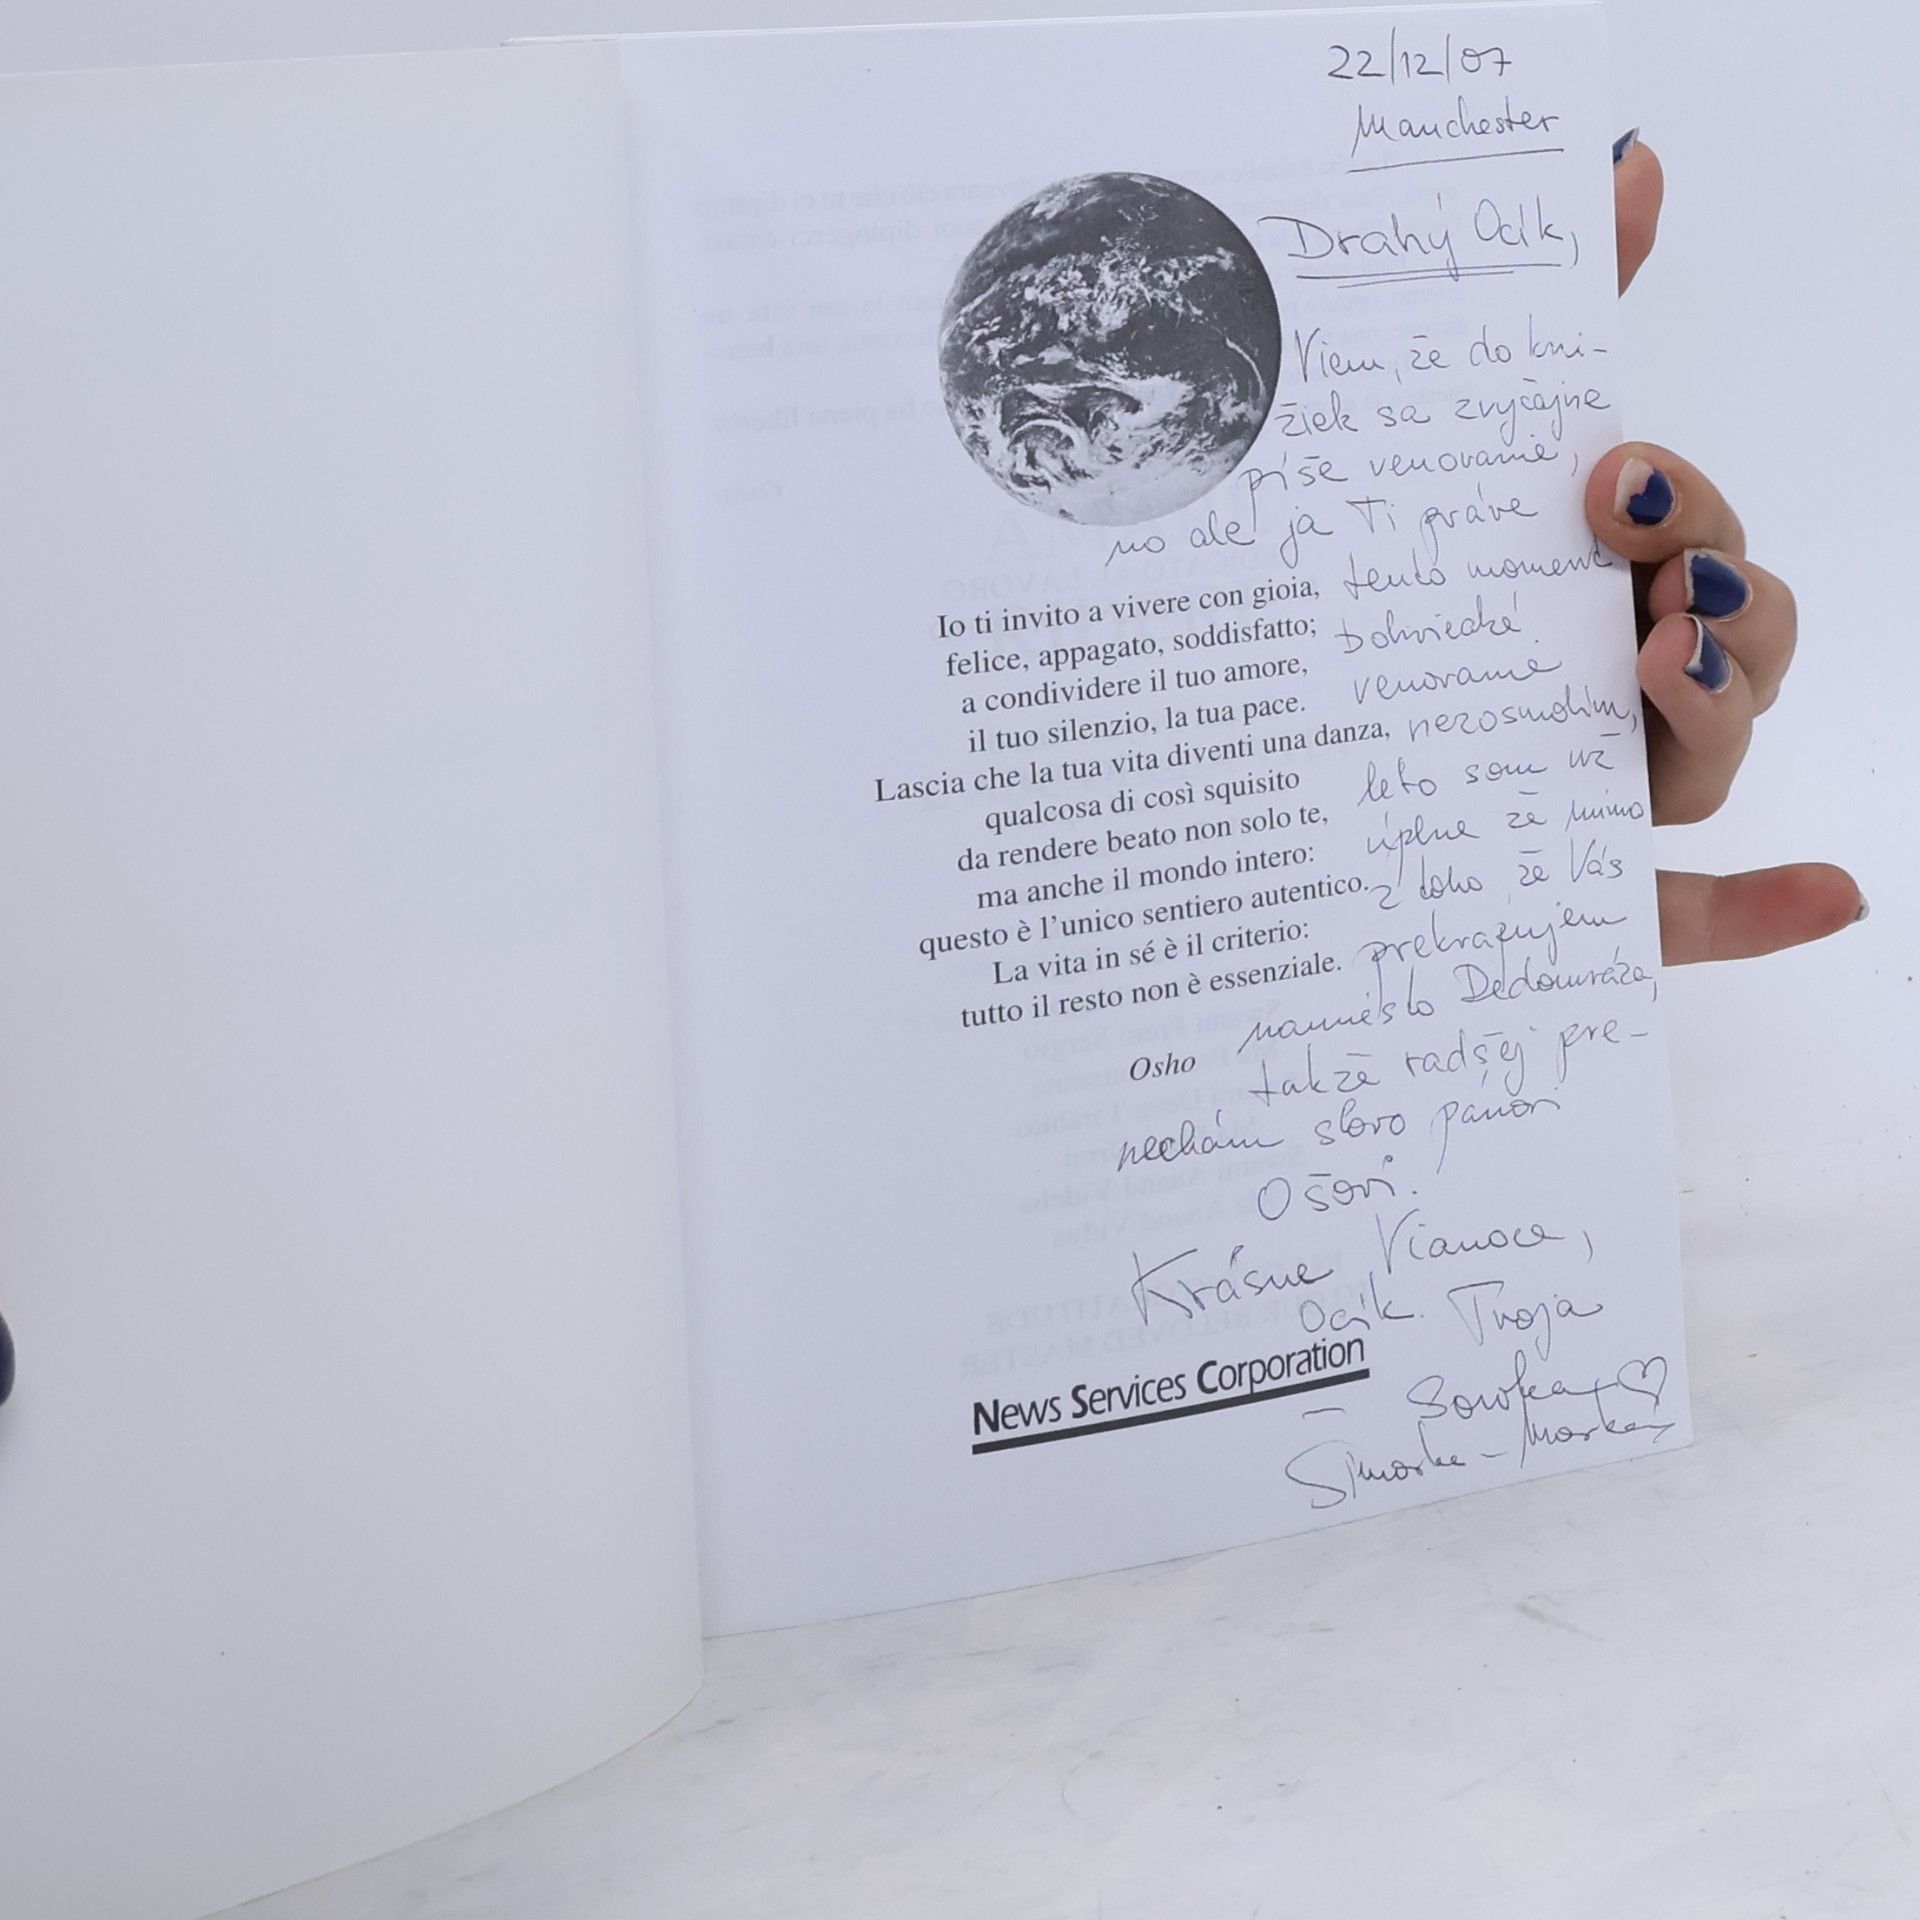 22/12/07
Manchester
Drahý Ocík,
Viem, že do kni-
žiek sa zvyčajne
píše venovanie,
no ale ja Ti práve
tento moment
venovanie
nezosmolím,
leto som už
úplne že mimo
z toho, že Vás
prekražujem
namiesto Dedomráza,
takže radšej pre-
nechám slovo pánovi
Ošovi.
Krásne Vianoce,
Ocík. Tvoja
Io ti invito a vivere con gioia,
felice, appagato, soddisfatto;
a condividere il tuo amore,
il tuo silenzio, la tua pace.
Lascia che la tua vita diventi una danza,
qualcosa di così squisito
da rendere beato non solo te,
ma anche il mondo intero:
questo è l'unico sentiero autentico.
La vita in sé è il criterio:
tutto il resto non è essenziale.
Osho
News Services Corporation